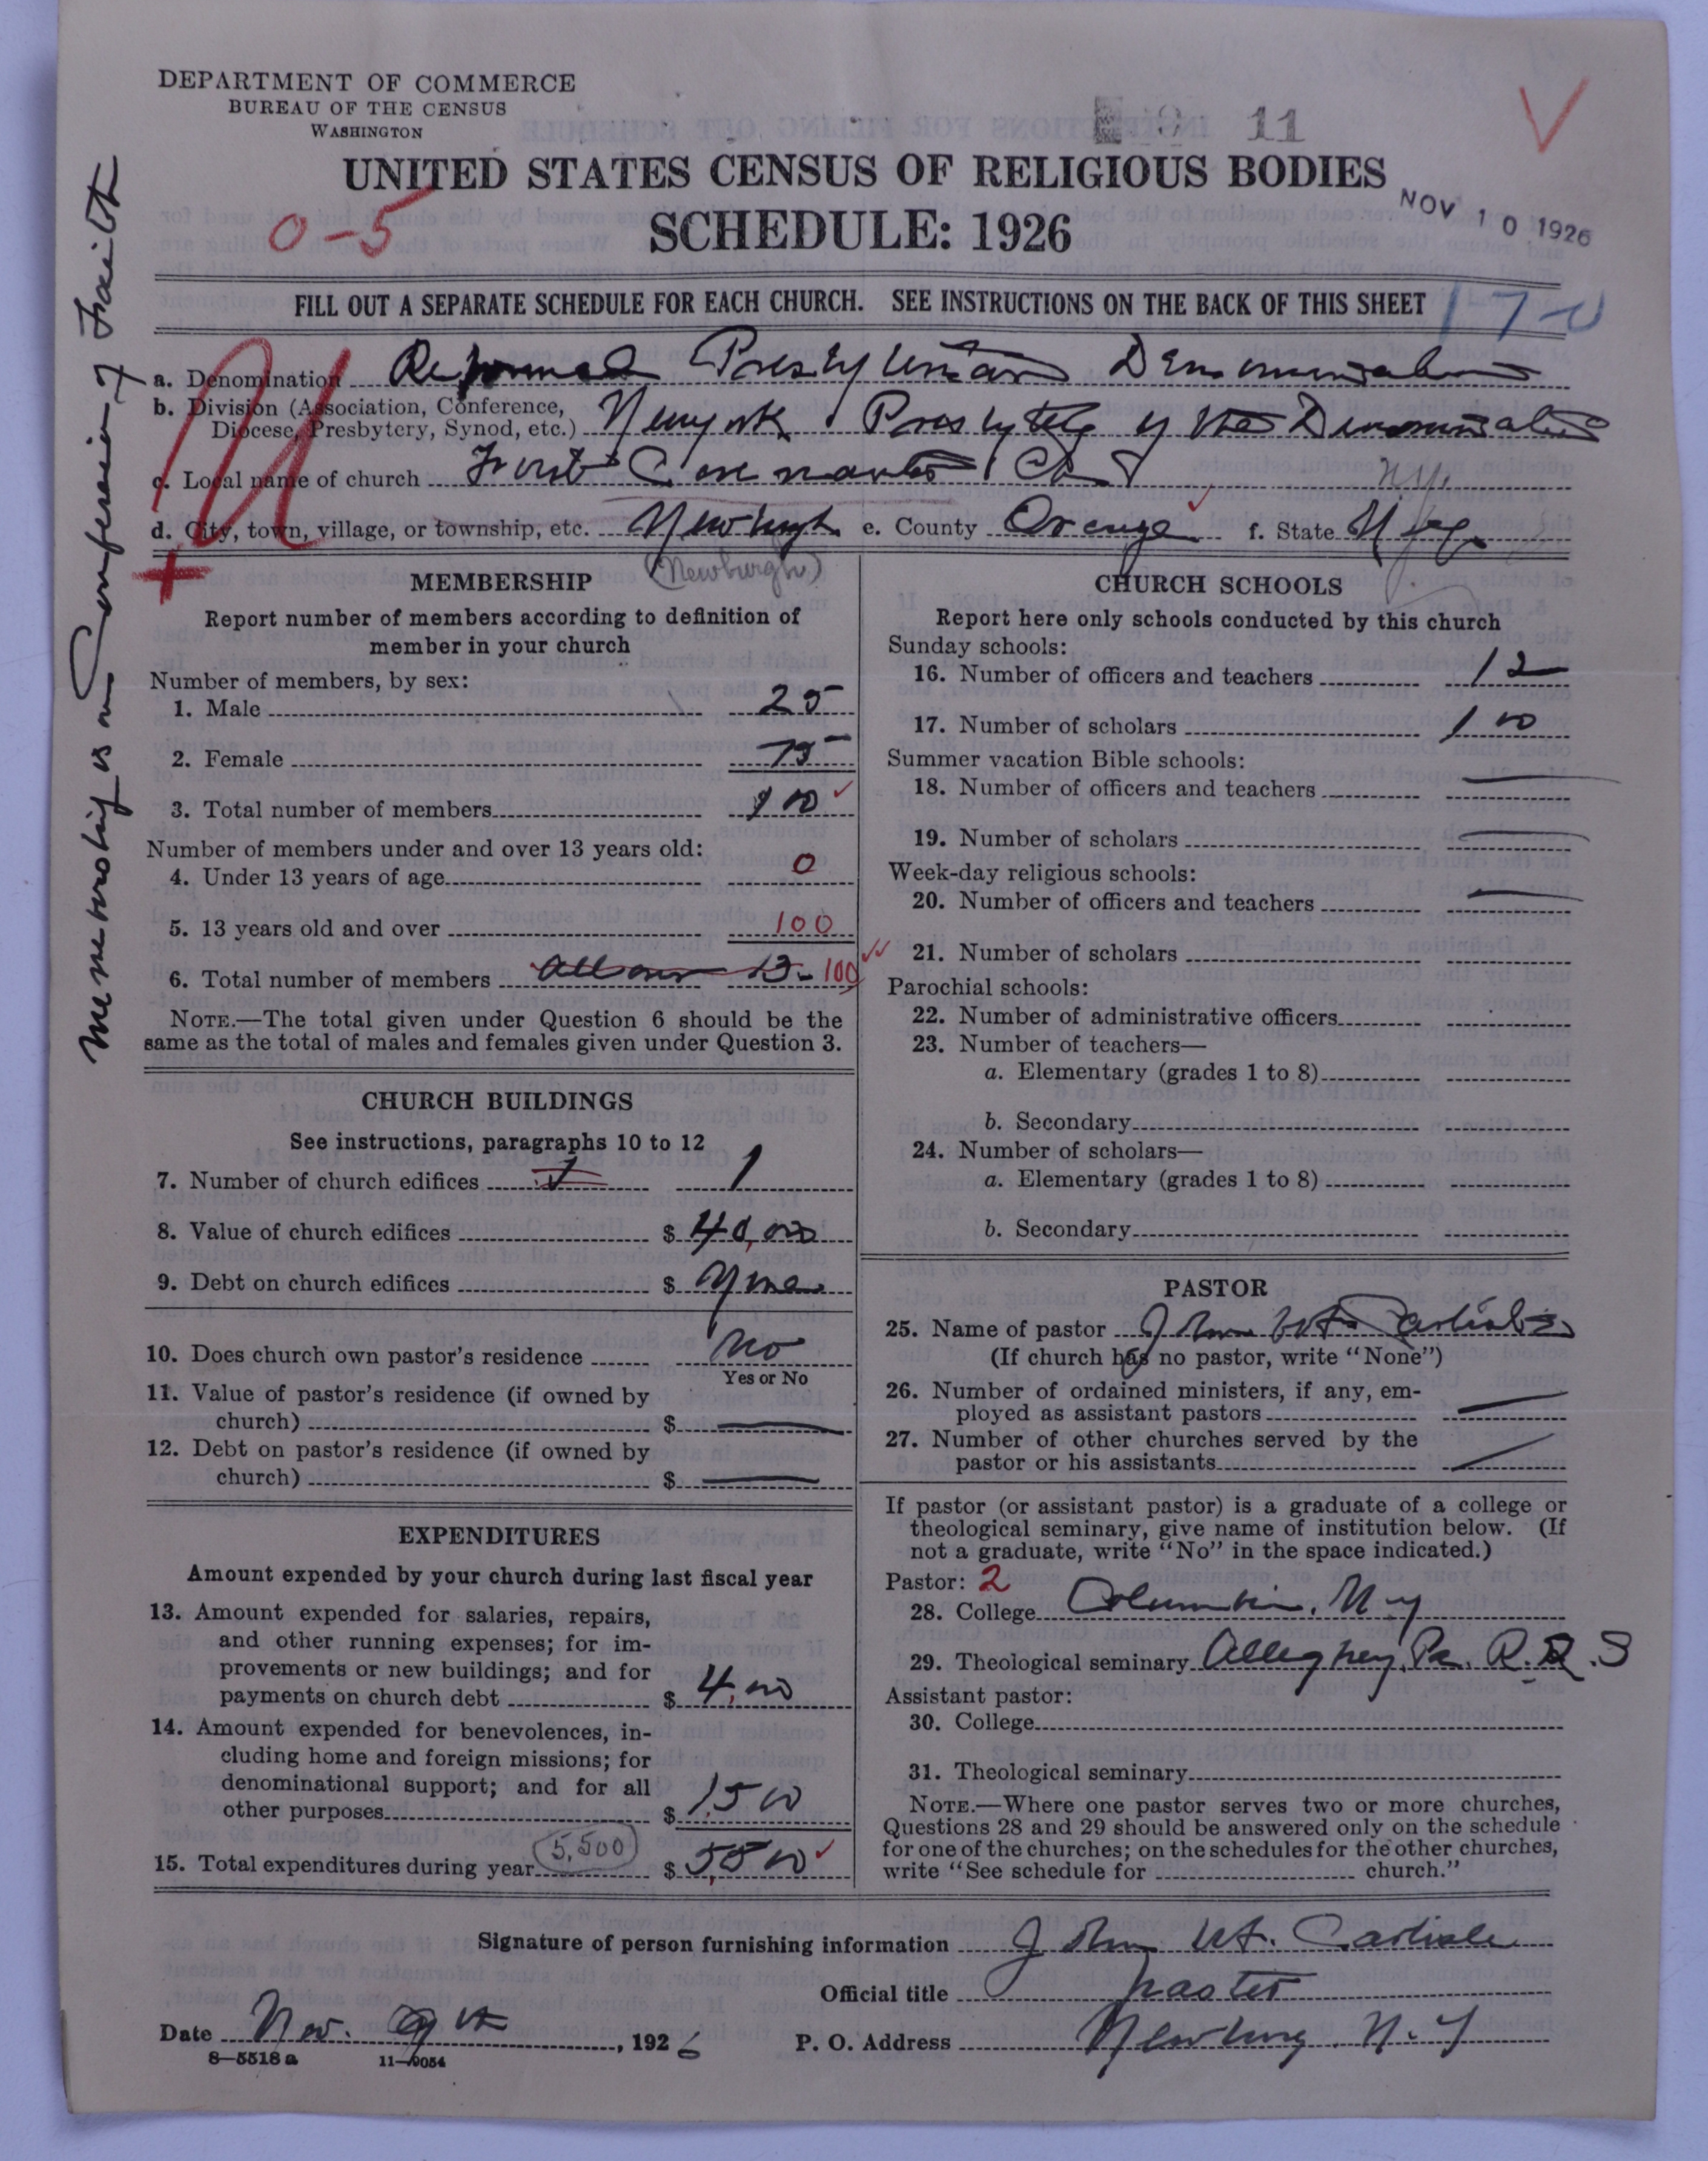 DEPARTMENT OF COMMERCE
BUREAU OF THE CENSUS
WASHINGTON
11
UNITED STATES CENSUS OF RELIGIOUS BODIES
SCHEDULE: 1926
0-5
NOV 10 1926
FILL OUT A SEPARATE SCHEDULE FOR EACH CHURCH. SEE INSTRUCTIONS ON THE BACK OF THIS SHEET
Membership is on Confession of Faith
a. Denomination Reformed Presbyterian Denomination
b. Division (Association, Conference, Diocese, Presbytery, Synod, etc.) New York Presbytery of the Denomination
c. Local name of church First Covenanter Ch N.Y.
d. City, town, village, or township, etc. Newburgh e. County Orange f. State N.Y.
(Newburgh)
MEMBERSHIP
Report number of members according to definition of
member in your church
Number of members, by sex:
1. Male 25
2. Female 75
3. Total number of members 100
Number of members under and over 13 years old:
4. Under 13 years of age 0
5. 13 years old and over 100
6. Total number of members all over 13- 100
NOTE.—The total given under Question 6 should be the
same as the total of males and females given under Question 3.
CHURCH BUILDINGS
See instructions, paragraphs 10 to 12
7. Number of church edifices 1 1
8. Value of church edifices $ 40,000
9. Debt on church edifices $ None
10. Does church own pastor's residence No
Yes or No
11. Value of pastor's residence (if owned by
church) $
12. Debt on pastor's residence (if owned by
church) $
EXPENDITURES
Amount expended by your church during last fiscal year
13. Amount expended for salaries, repairs,
and other running expenses; for im-
provements or new buildings; and for
payments on church debt $ 4,00
14. Amount expended for benevolences, in-
cluding home and foreign missions; for
denominational support; and for all
other purposes $ 1500
15. Total expenditures during year 5,500 $ 5500
CHURCH SCHOOLS
Report here only schools conducted by this church
Sunday schools:
16. Number of officers and teachers 12
17. Number of scholars 100
Summer vacation Bible schools:
18. Number of officers and teachers
19. Number of scholars
Week-day religious schools:
20. Number of officers and teachers
21. Number of scholars
Parochial schools:
22. Number of administrative officers
23. Number of teachers—
a. Elementary (grades 1 to 8)
b. Secondary
24. Number of scholars—
a. Elementary (grades 1 to 8)
b. Secondary
PASTOR
25. Name of pastor John W. F. Carlisle
(If church has no pastor, write "None")
26. Number of ordained ministers, if any, em-
ployed as assistant pastors
27. Number of other churches served by the
pastor or his assistants
If pastor (or assistant pastor) is a graduate of a college or
theological seminary, give name of institution below. (If
not a graduate, write "No" in the space indicated.)
Pastor: 2
28. College Columbia. N y
29. Theological seminary Allegheny, Pa.
Assistant pastor:
30. College
31. Theological seminary
NOTE.—Where one pastor serves two or more churches,
Questions 28 and 29 should be answered only on the schedule
for one of the churches; on the schedules for the other churches,
write "See schedule for church."
Signature of person furnishing information John W. F. Carlisle
Official title pastor
Date Nov. 9th, 1926 P. O. Address Newburg. N.Y
8—5518 a 11—9054